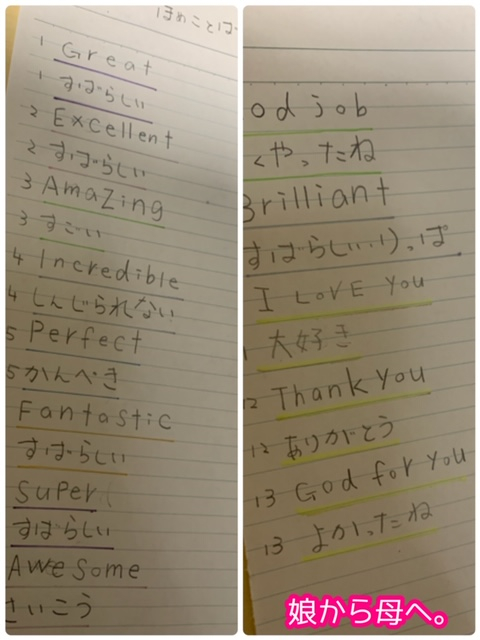 ほめことば
1 Great
1 すばらしい
2 Excellent
2 すばらしい
3 Amazing
3 すごい
4 Incredible
4 しんじられない
5 Perfect
5 かんぺき
Fantastic
すばらしい
Super
すばらしい
Awesome
さいこう
od job
くやったね
Brilliant
すばらしい.りっぱ
I LOVE You
1 大好き
12 Thank You
12 ありがとう
13 God for you
13 よかったね
娘から母へ。